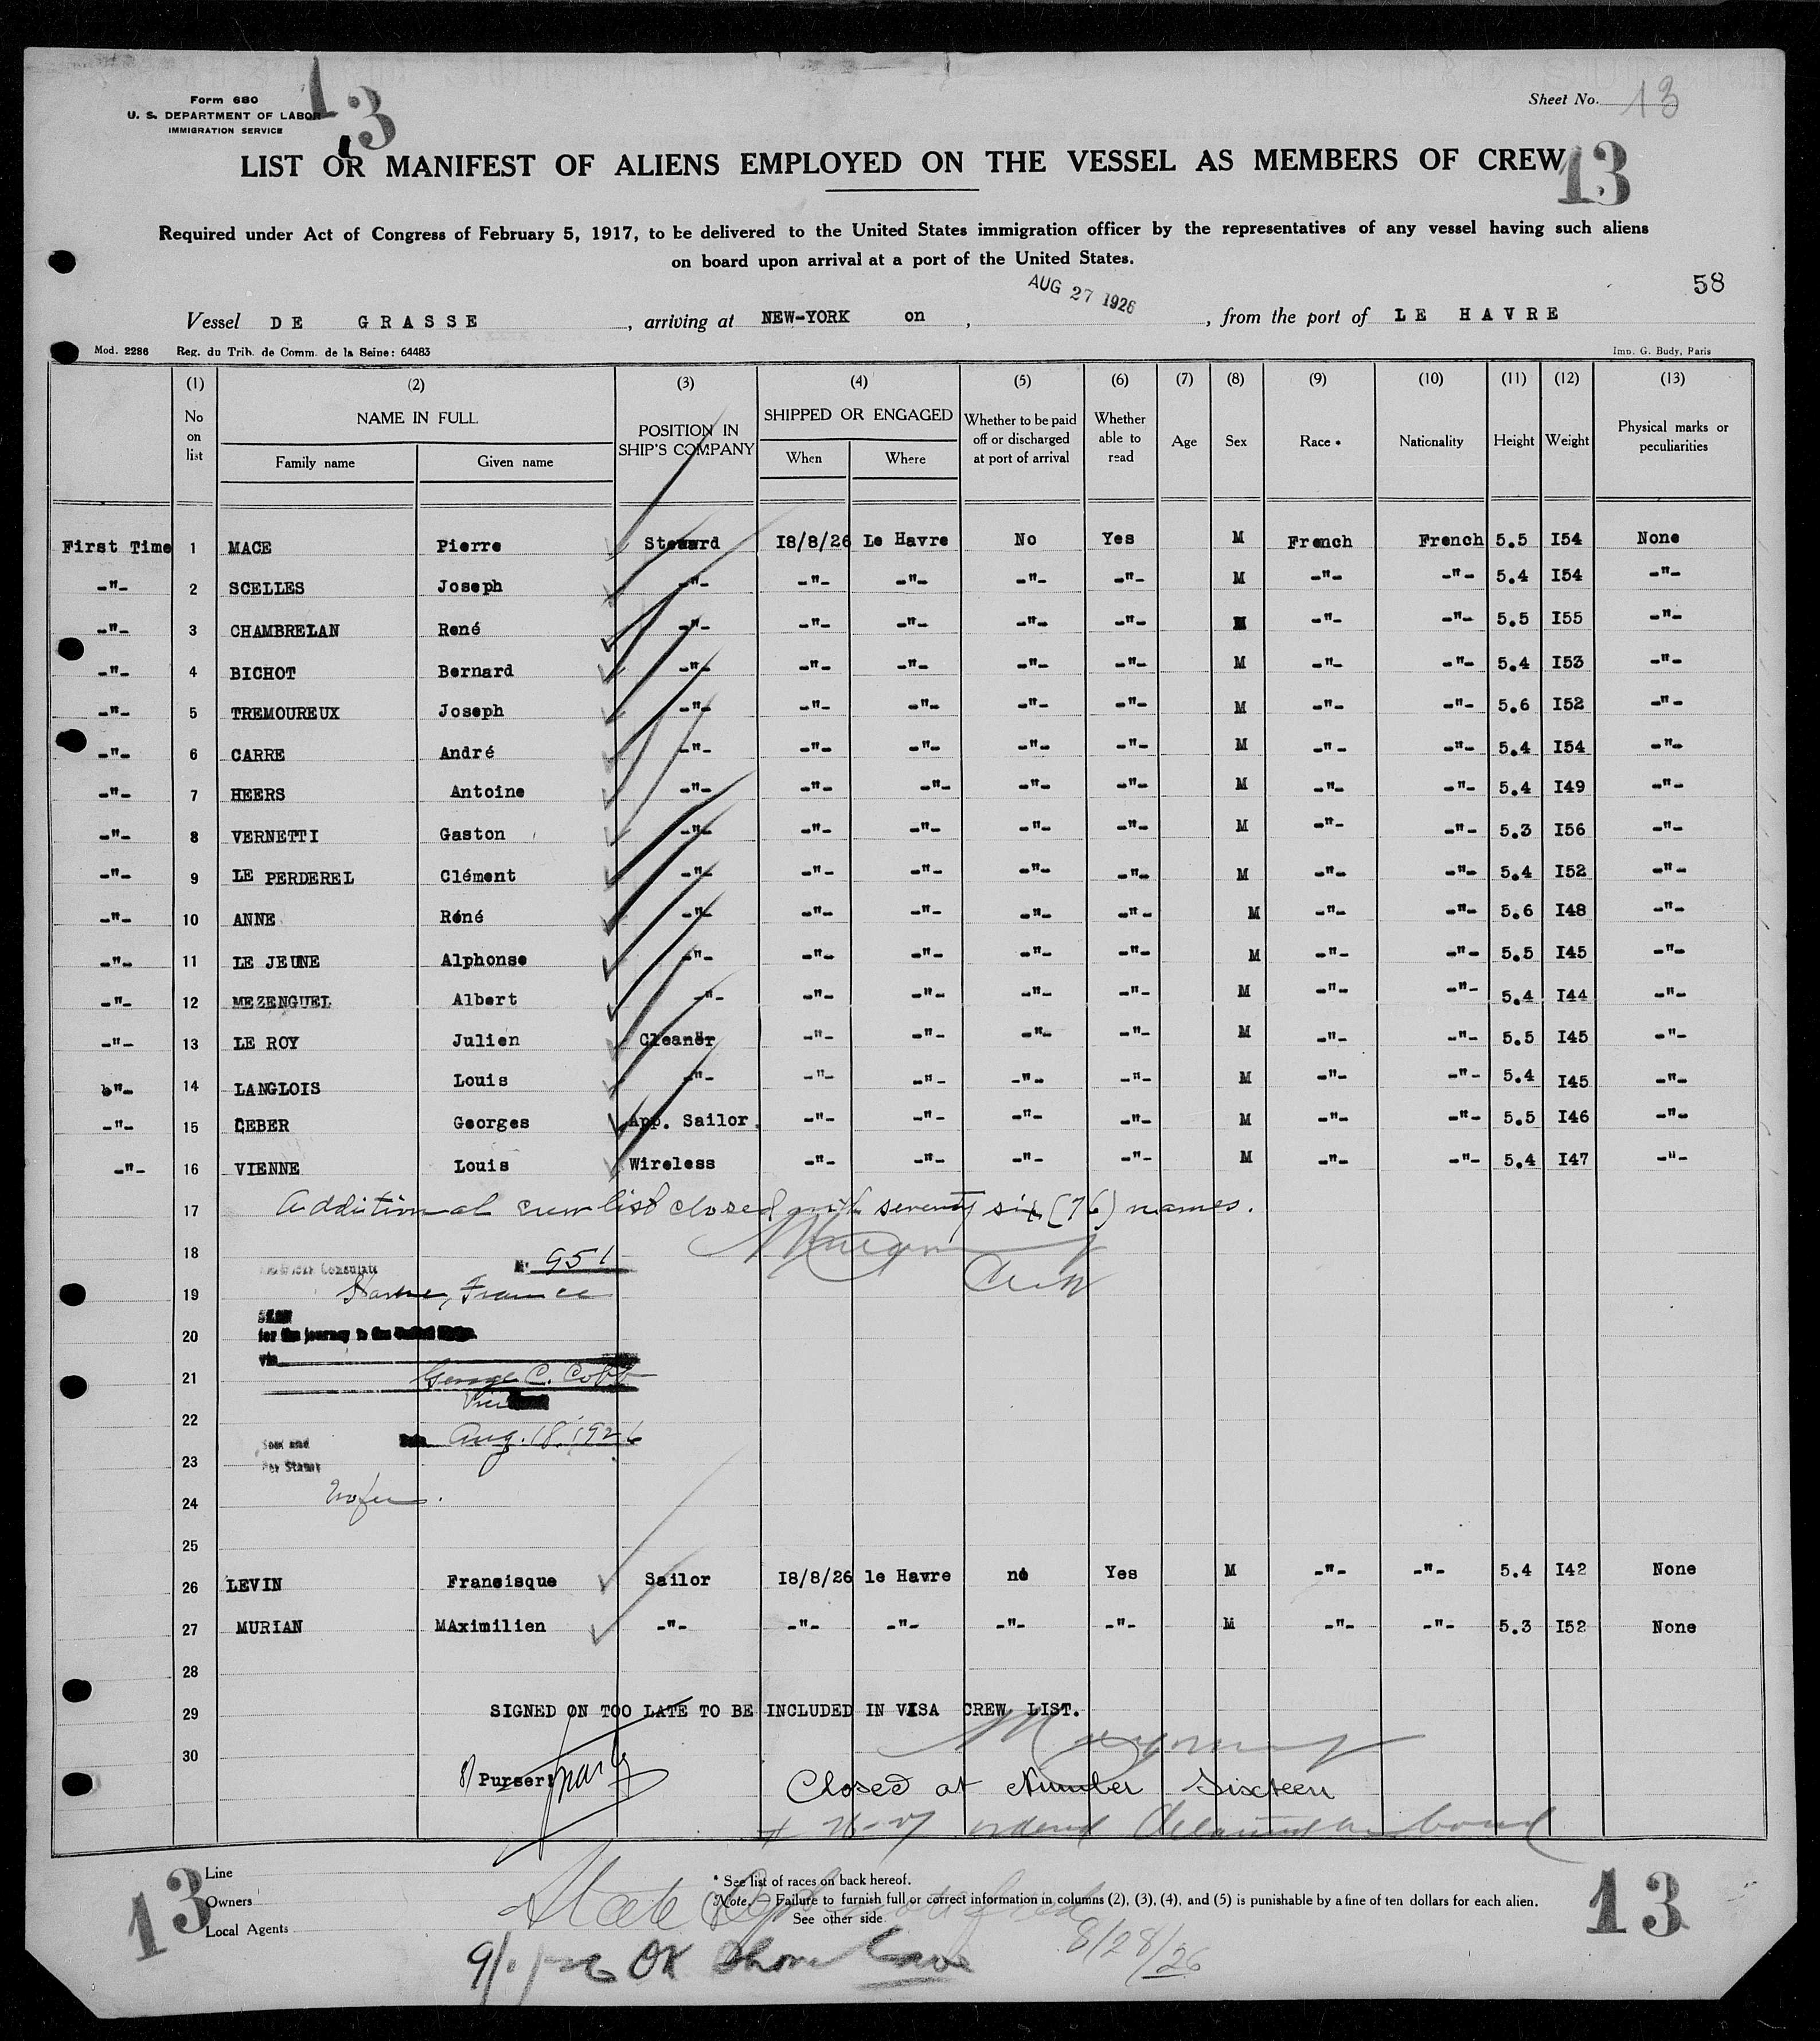 13
Form 680
U. S. DEPARTMENT OF LABOR
IMMIGRATION SERVICE
Sheet No. 13
LIST OR MANIFEST OF ALIENS EMPLOYED ON THE VESSEL AS MEMBERS OF CREW
13
Required under Act of Congress of February 5, 1917, to be delivered to the United States immigration officer by the representatives of any vessel having such aliens
on board upon arrival at a port of the United States.
58
AUG 27 1926
Vessel DE GRASSE, arriving at NEW-YORK on , from the port of LE HAVRE
Mod. 2286 Reg. du Trib. de Comm. de la Seine: 64483 Imp. G. Budy, Paris
(1) (2) (3) (4) (5) (6) (7) (8) (9) (10) (11) (12) (13)
No on list NAME IN FULL Family name Given name POSITION IN SHIP'S COMPANY SHIPPED OR ENGAGED When Where Whether to be paid off or discharged at port of arrival Whether able to read Age Sex Race * Nationality Height Weight Physical marks or peculiarities
First Time 1 MACE Pierre Steward I8/8/26 Le Havre No Yes M French French 5.5 I54 None
-"- 2 SCELLES Joseph -"- -"- -"- -"- -"- M -"- -"- 5.4 I54 -"-
-"- 3 CHAMBRELAN René -"- -"- -"- -"- -"- M -"- -"- 5.5 I55 -"-
-"- 4 BICHOT Bernard -"- -"- -"- -"- -"- M -"- -"- 5.4 I53 -"-
-"- 5 TREMOUREUX Joseph -"- -"- -"- -"- -"- M -"- -"- 5.6 I52 -"-
-"- 6 CARRE André -"- -"- -"- -"- -"- M -"- -"- 5.4 I54 -"-
-"- 7 HEERS Antoine -"- -"- -"- -"- -"- M -"- -"- 5.4 I49 -"-
-"- 8 VERNETTI Gaston -"- -"- -"- -"- -"- M -"- -"- 5.3 I56 -"-
-"- 9 LE PERDEREL Clément -"- -"- -"- -"- -"- M -"- -"- 5.4 I52 -"-
-"- 10 ANNE Réné -"- -"- -"- -"- -"- M -"- -"- 5.6 I48 -"-
-"- 11 LE JEUNE Alphonse -"- -"- -"- -"- -"- M -"- -"- 5.5 I45 -"-
-"- 12 MEZENGUEL Albert -"- -"- -"- -"- -"- M -"- -"- 5.4 I44 -"-
-"- 13 LE ROY Julien Cleaner -"- -"- -"- -"- M -"- -"- 5.5 I45 -"-
-"- 14 LANGLOIS Louis -"- -"- -"- -"- -"- M -"- -"- 5.4 I45 -"-
-"- 15 CEBER Georges App. Sailor. -"- -"- -"- -"- M -"- -"- 5.5 I46 -"-
-"- 16 VIENNE Louis Wireless -"- -"- -"- -"- M -"- -"- 5.4 I47 -"-
17 Additional crew list closed with seventy six (76) names.
18
American Consulate No. 951
19 Havre, France
SEEN
20 for the journey to the United States
via
21 George C. Cobb
Vice
22
Date Aug. 18, 1926
23
24 No fee.
25
26 LEVIN Fransisque Sailor I8/8/26 le Havre no Yes M -"- -"- 5.4 I42 None
27 MURIAN MAximilien -"- -"- -"- -"- -"- M -"- -"- 5.3 I52 None
28
29 SIGNED ON TOO LATE TO BE INCLUDED IN VISA CREW LIST.
30
Purser:
Closed at Number Sixteen
+ 26-27 ordered
13
Line
Owners
Local Agents
* See list of races on back hereof.
Note. — Failure to furnish full or correct information in columns (2), (3), (4), and (5) is punishable by a fine of ten dollars for each alien.
See other side
13
State Dept notified
8/28/26
OK Shore leave